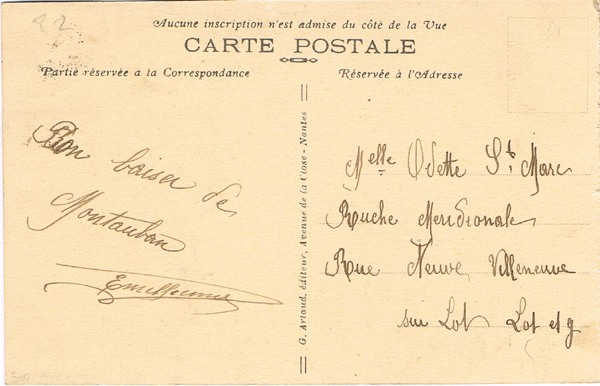 82
Aucune inscription n'est admise du côté de la Vue
CARTE POSTALE
Partie réservée a la Correspondance
Réservée à l'Adresse
Bon baiser de
Montauban
G. Artaud, éditeur, Avenue de la Close - Nantes
Melle Odette St. Marc
Ruche Meridionale
Rue Neuve Villeneuve
sur Lot Lot et g